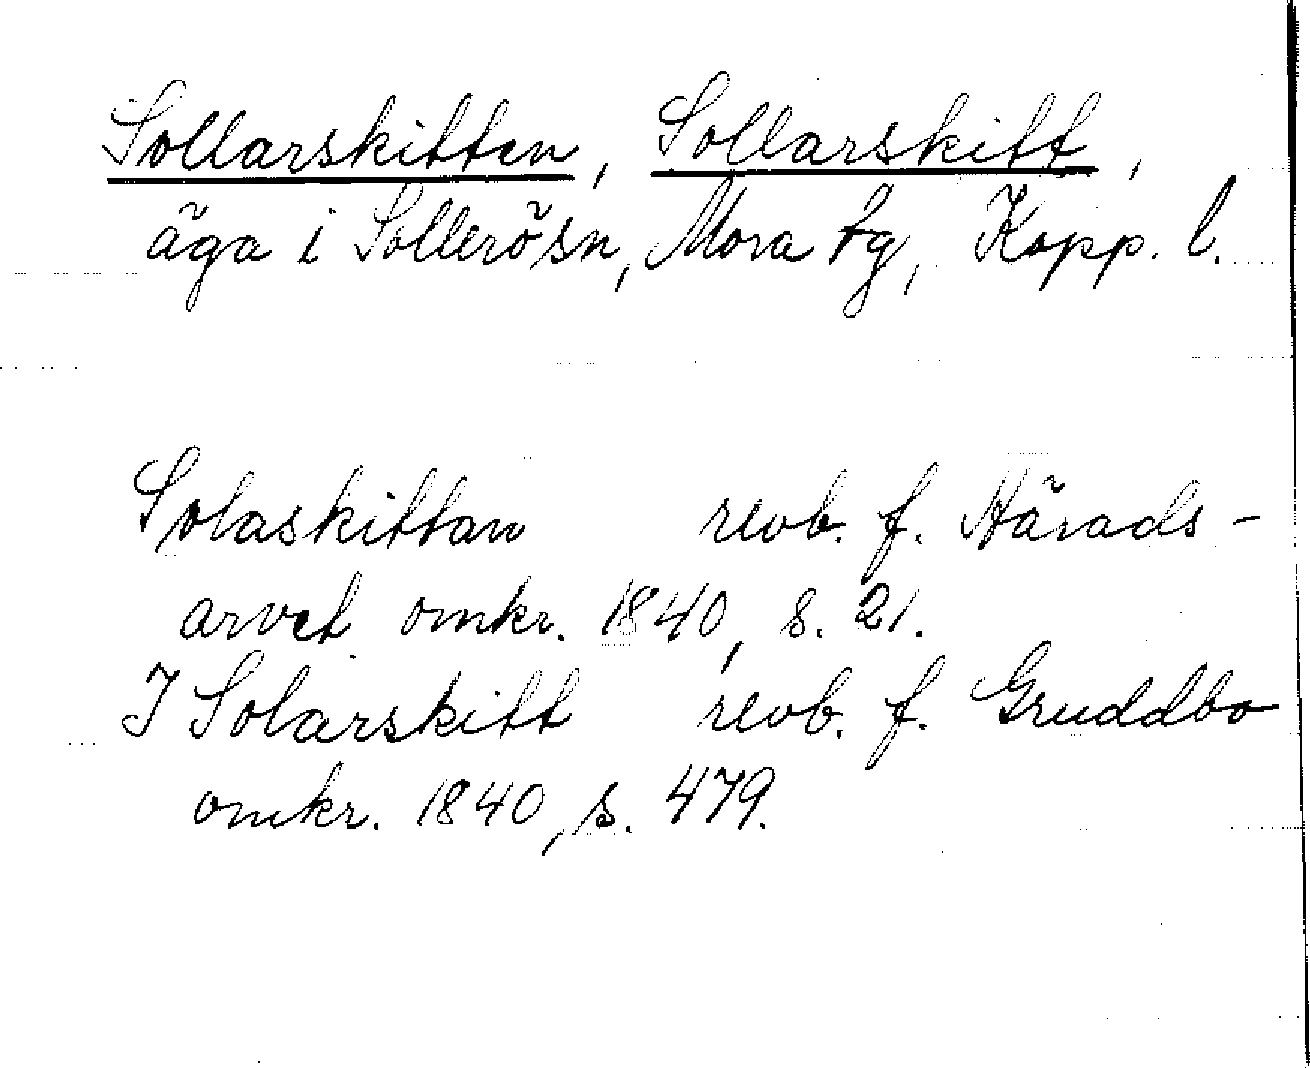 Sollarskitten, Sollarskitt,
äga i Sollerösn, Mora tg, Kopp. l.
Solaskittan revb. f. Härads-
arvet omkr. 1840, s. 21.
I Solarskitt revb. f. Gruddbo
omkr. 1840, s. 479.